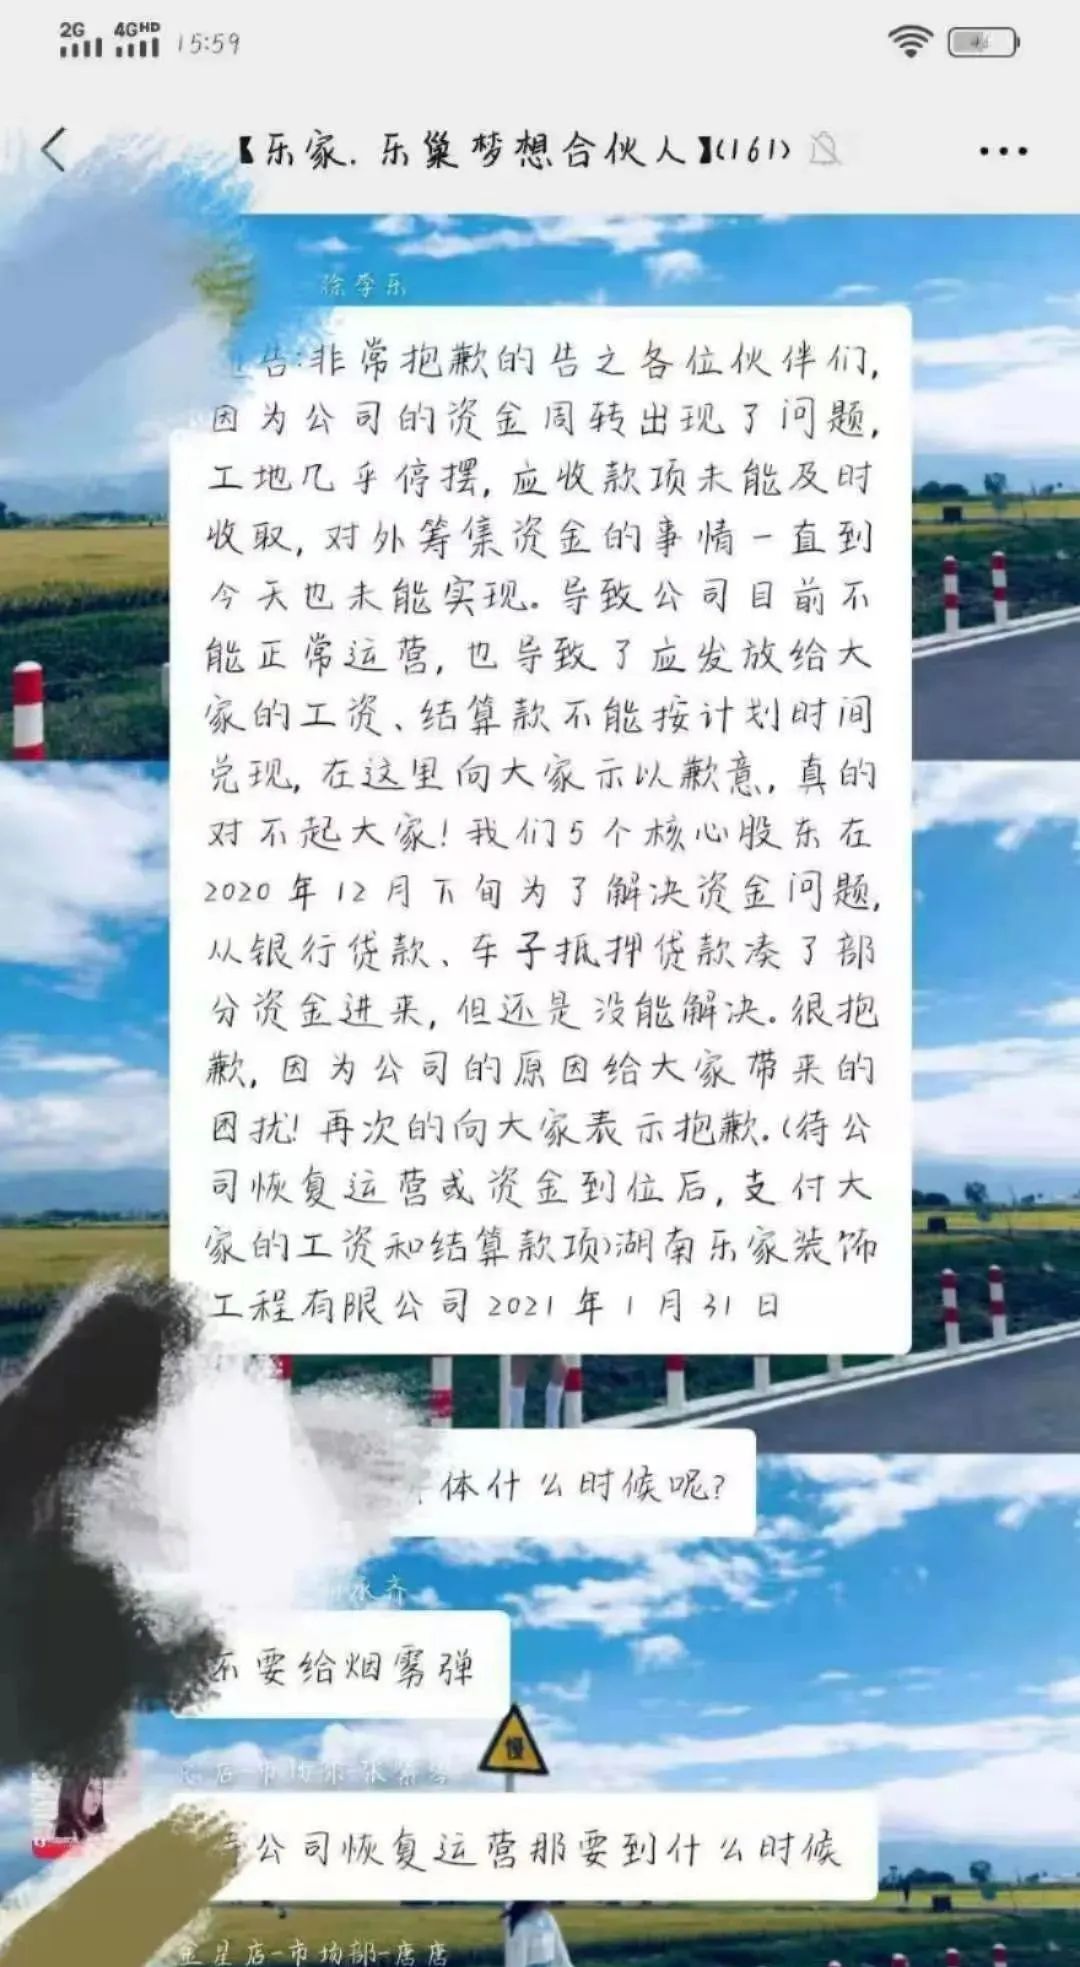 2G 4GHD 15:59
【乐家.乐巢梦想合伙人】(161)
徐季乐
告:非常抱歉的告之各位伙伴们,
因为公司的资金周转出现了问题,
工地几乎停摆,应收款项未能及时
收取,对外筹集资金的事情一直到
今天也未能实现。导致公司目前不
能正常运营,也导致了应发放给大
家的工资、结算款不能按计划时间
兑现,在这里向大家示以歉意,真的
对不起大家!我们5个核心股东在
2020年12月下旬为了解决资金问题,
从银行贷款、车子抵押贷款凑了部
分资金进来,但还是没能解决。很抱
歉,因为公司的原因给大家带来的
困扰!再次的向大家表示抱歉.(待公
司恢复运营或资金到位后,支付大
家的工资和结算款项)湖南乐家装饰
工程有限公司2021年1月31日
体什么时候呢?
永齐
不要给烟雾弹
慢
店-市场部-张
公司恢复运营那要到什么时候
星店-市场部-唐唐